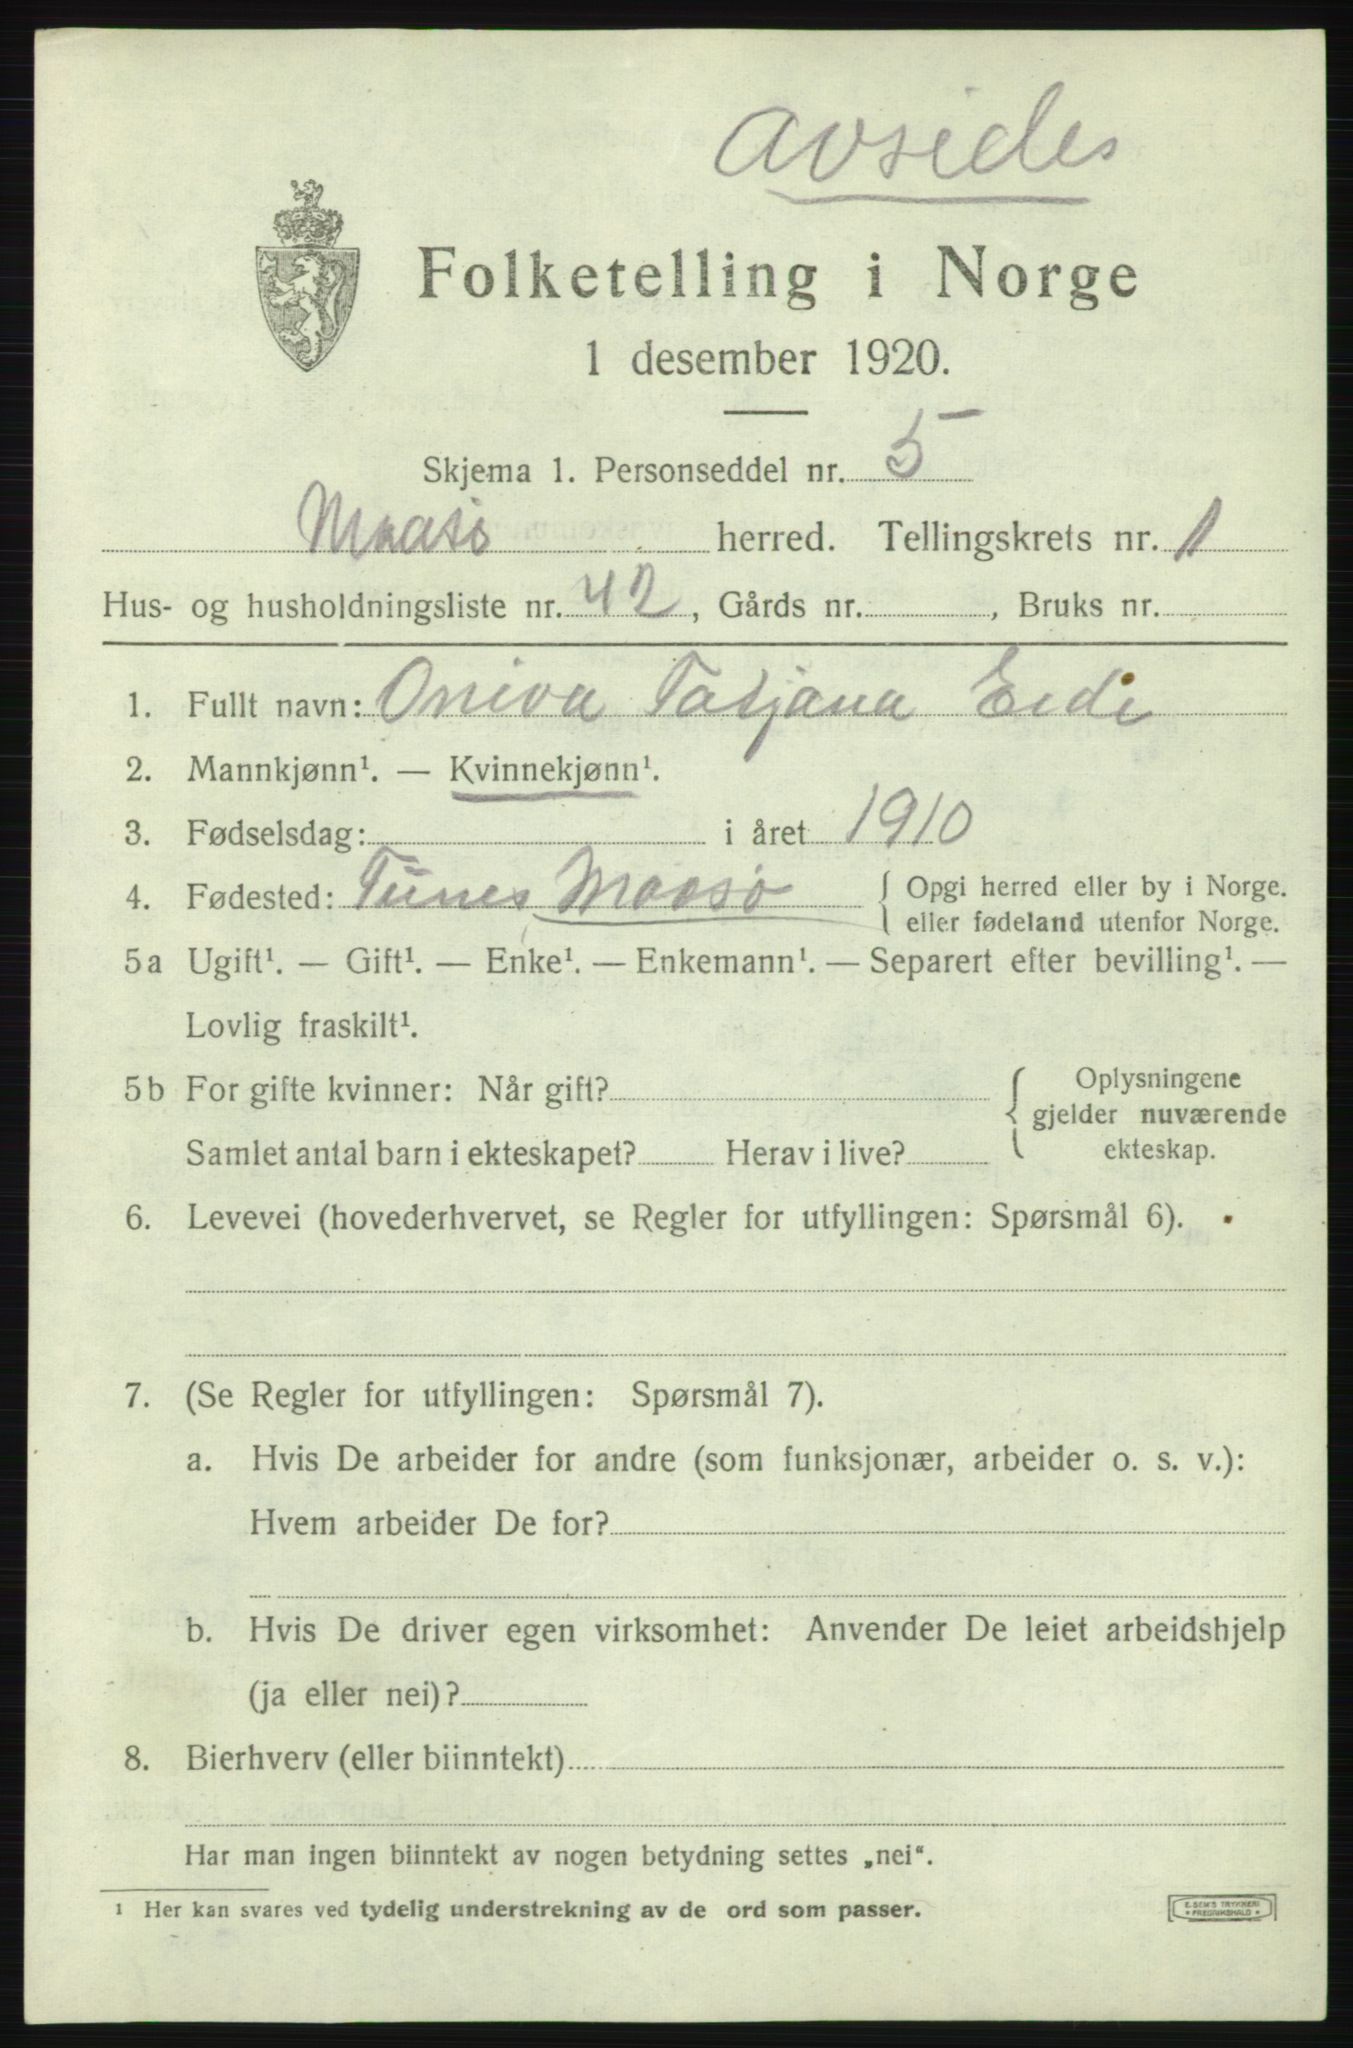 Avsides
Folketelling i Norge
1 desember 1920.
Skjema 1. Personseddel nr. 5
Maasø herred. Tellingskrets nr. 1
Hus- og husholdningsliste nr. 42, Gårds nr. , Bruks nr.
1. Fullt navn: Oniva Tatjana Eide
2. Mannkjønn¹. — Kvinnekjønn¹.
3. Fødselsdag: i året 1910
4. Fødested: Tunes Maasø { Opgi herred eller by i Norge.
eller fødeland utenfor Norge.
5a Ugift¹. — Gift¹. — Enke¹. — Enkemann¹. — Separert efter bevilling¹. —
Lovlig fraskilt¹.
5b For gifte kvinner: Når gift? { Oplysningene
gjelder nuværende
Samlet antal barn i ekteskapet? Herav i live? ekteskap.
6. Levevei (hovederhvervet, se Regler for utfyllingen: Spørsmål 6).
7. (Se Regler for utfyllingen: Spørsmål 7).
a. Hvis De arbeider for andre (som funksjonær, arbeider o. s. v.):
Hvem arbeider De for?
b. Hvis De driver egen virksomhet: Anvender De leiet arbeidshjelp
(ja eller nei)?
8. Bierhverv (eller biinntekt)
Har man ingen biinntekt av nogen betydning settes „nei“.
¹ Her kan svares ved tydelig understrekning av de ord som passer.
E. SEM'S TRYKKERI
FREDRIKSHALD